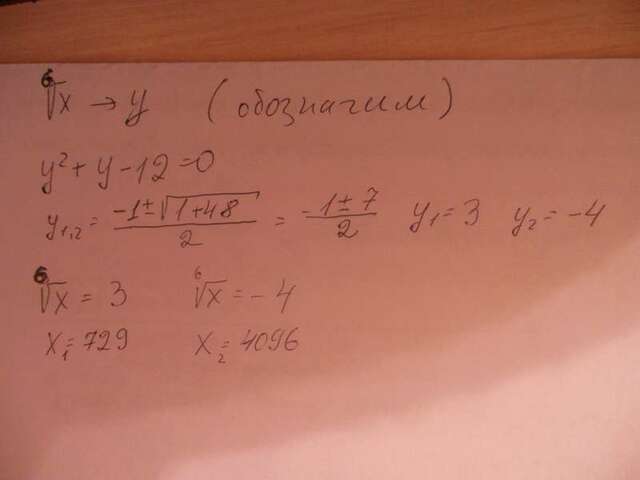 ⁶√x → y (обозначим)
y² + y - 12 = 0
y₁,₂ = (-1 ± √(1+48))/2 = (-1 ± 7)/2 y₁ = 3 y₂ = -4
⁶√x = 3 ⁶√x = -4
x₁ = 729 x₂ = 4096